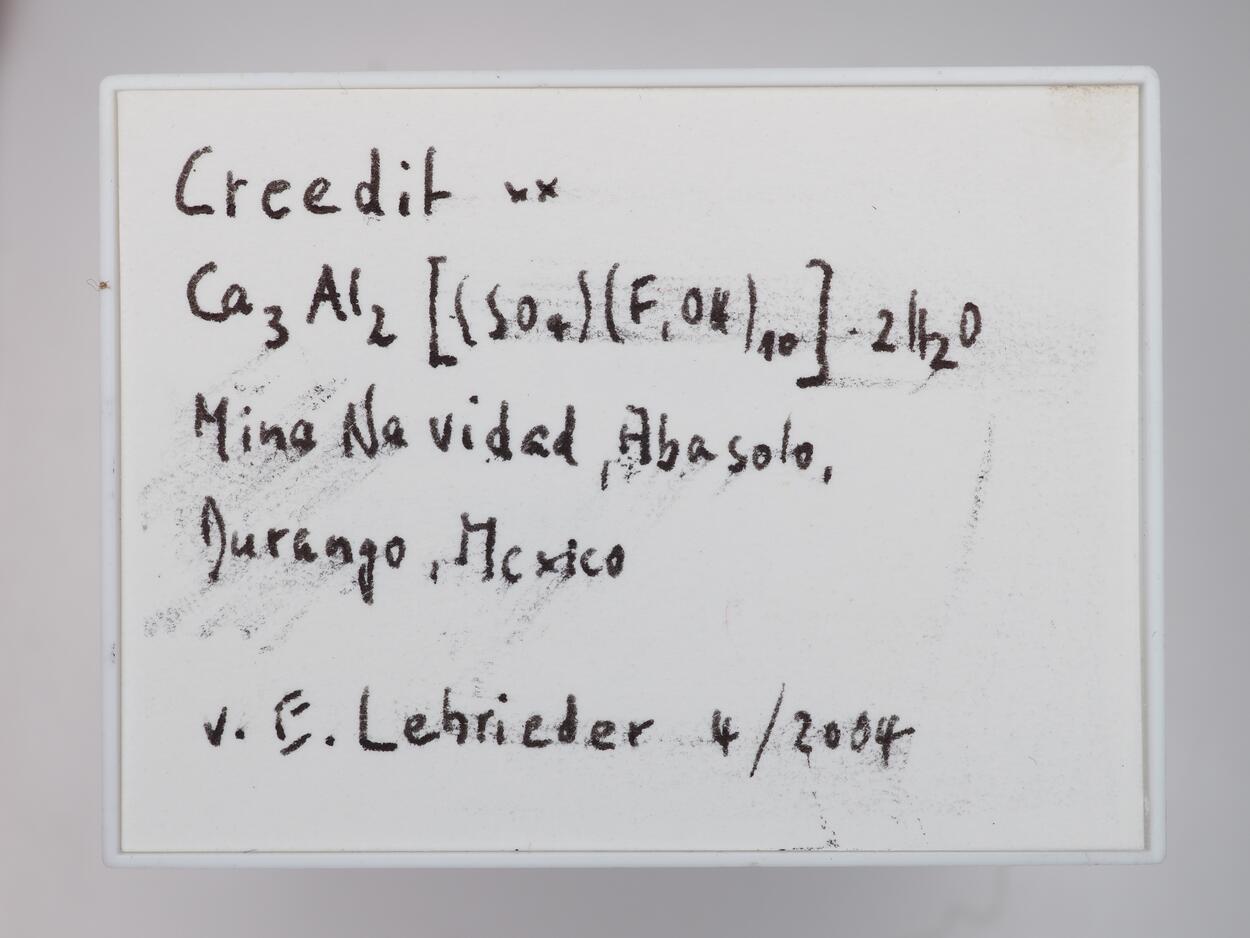 Creedit xx
Ca₃Al₂[(SO₄)(F,OH)₁₀]·2H₂O
Mina Navidad, Abasolo,
Durango, Mexico
v. E. Lehrieder 4/2004